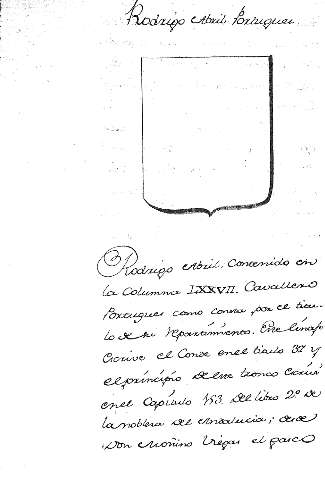 Rodrigo Abril Portugues.
Rodrigo Abril. Contenido en
la Columna LXXVII. Cavallero
Portugues como consta por el titu-
lo de su Repartimiento. Este linaje
escrive el Conde en el titulo 37 y
el principio de este tronco
en el Capitulo 153 del libro 2º de
la nobleza del Andalucia; desde
Don Moñino Viegas el gasco